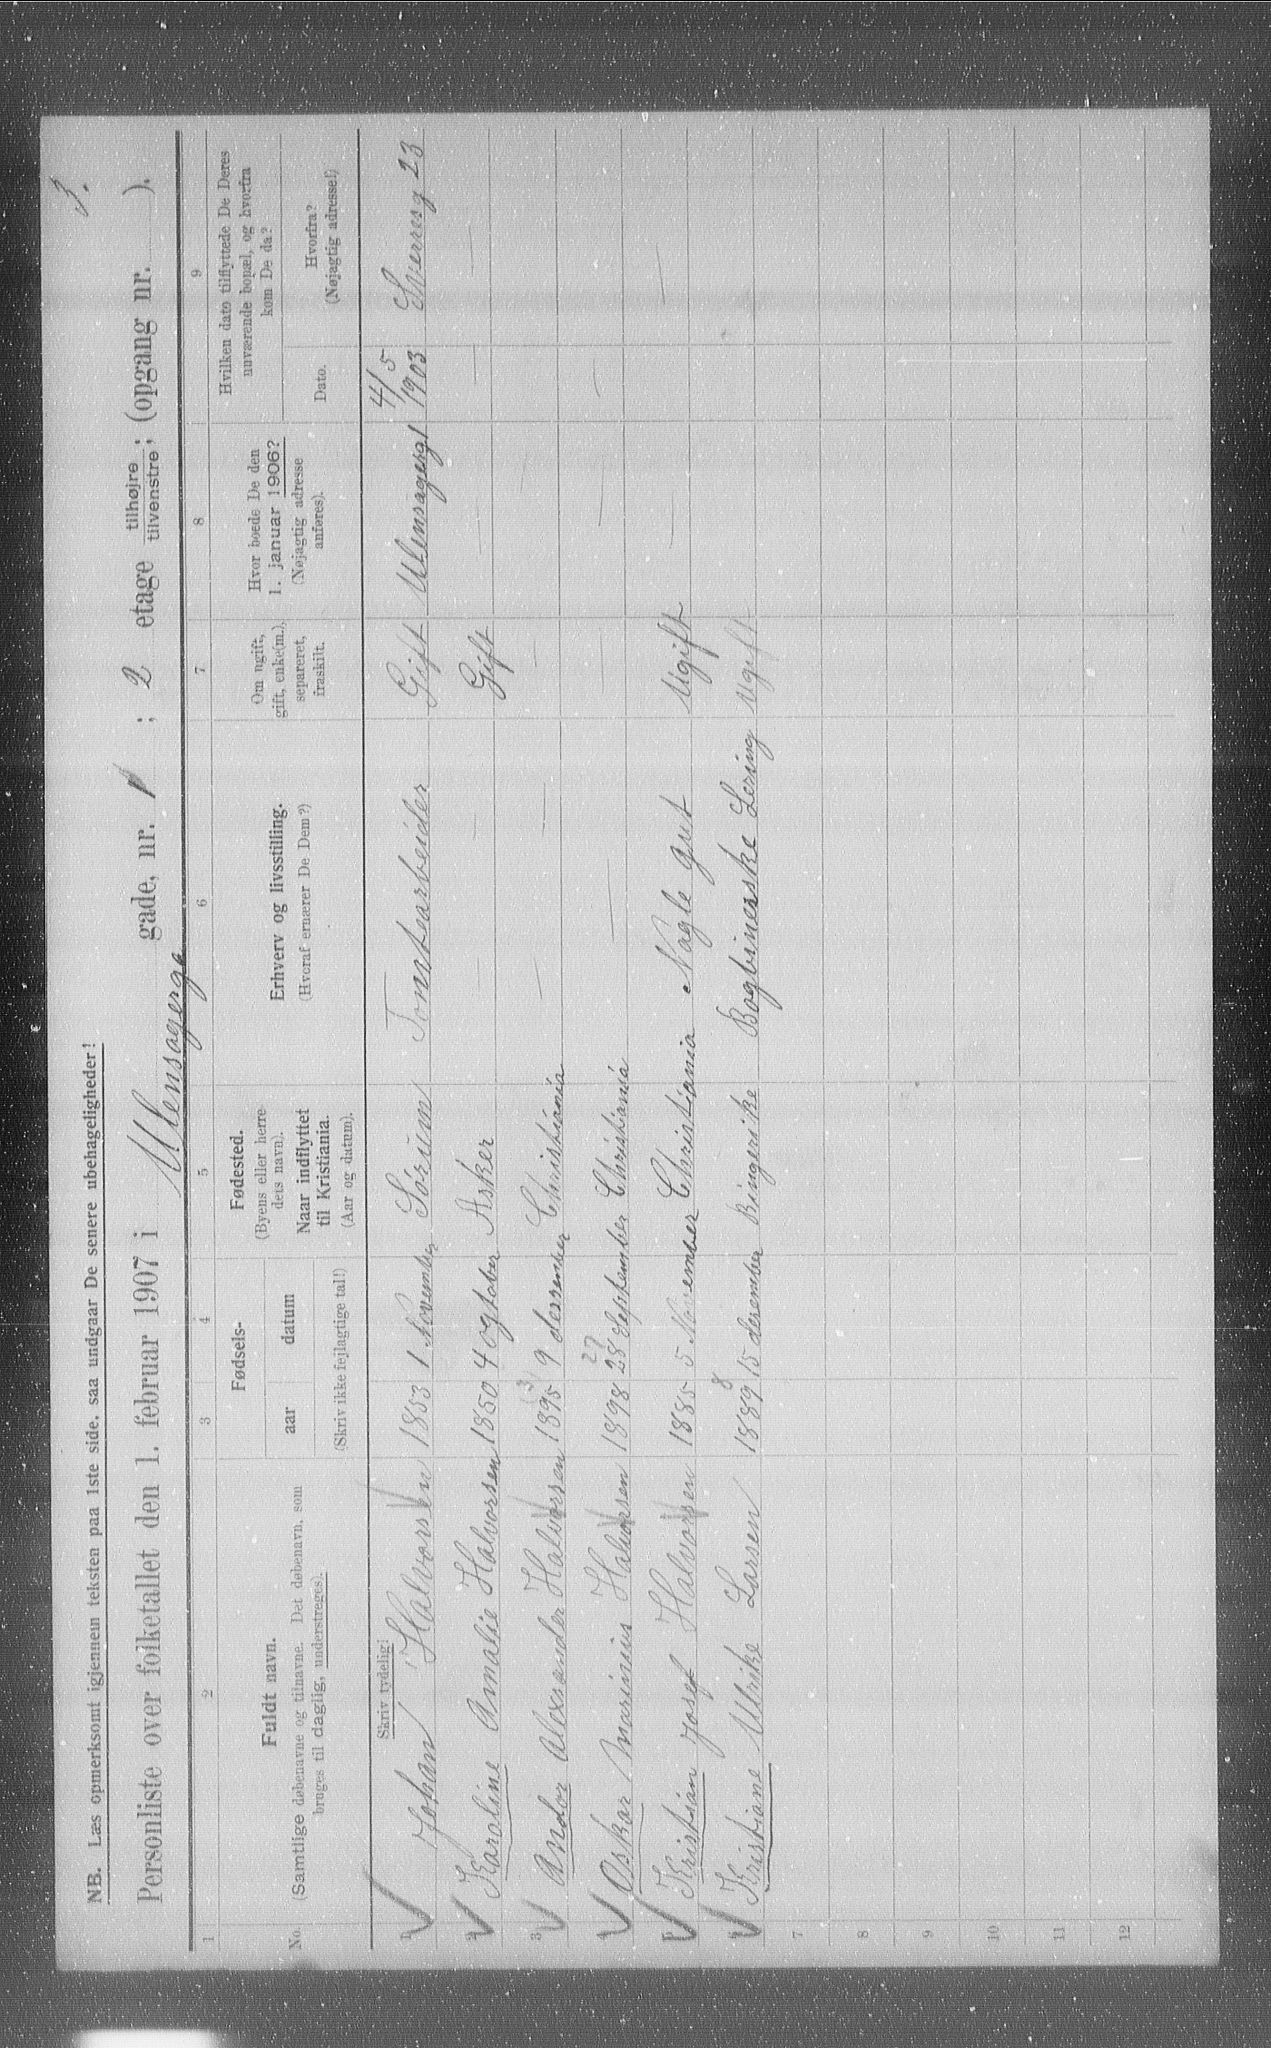 3.
NB. Læs opmerksomt igjennem teksten paa 1ste side, saa undgaar De senere ubehageligheder!
Personliste over folketallet den 1. februar 1907 i Ulensagerga gade, nr. 1 ; 2 etage tilhøjre / tilvenstre ; (opgang nr. ).
1 2 3 4 5 6 7 8 9
No.
Fuldt navn.
(Samtlige døbenavne og tilnavne. Det døbenavn, som
bruges til daglig, understreges).
Fødsels-
aar datum
(Skriv ikke fejlagtige tal!)
Fødested.
(Byens eller herre-
dets navn).
Naar indflyttet
til Kristiania.
(Aar og datum).
Erhverv og livsstilling.
(Hvoraf ernærer De Dem?)
Om ugift,
gift, enke(m.),
separeret,
fraskilt.
Hvor boede De den
1. januar 1906?
(Nøjagtig adresse
anføres).
Hvilken dato tilflyttede De Deres
nuværende bopæl, og hvorfra
kom De da?
Dato.
Hvorfra?
(Nøjagtig adresse!)
Skriv tydelig!
1 Johan Halvorsen 1853 1 November Sørum Tomtearbeider Gift Ulensagerg 1 4/5 1903 Sverresg 23
2 Karoline Amalie Halvorsen 1850 4 ogtober Asker — — Gift — — —
3 Andor Alexsander Halvorsen 1895 9 desember Christiania — — — —
4 Oskar Marinius Halvorsen 1898 28 27 September Christiania — — — — —
5 Kristian Josef Halvorsen 1885 5 November Christiania Nagle gut Ugift — —
6 Kristiane Ulrike Larsen 1889 8 15 desember Ringerike Bogbinerske Lering Ugift
7
8
9
10
11
12